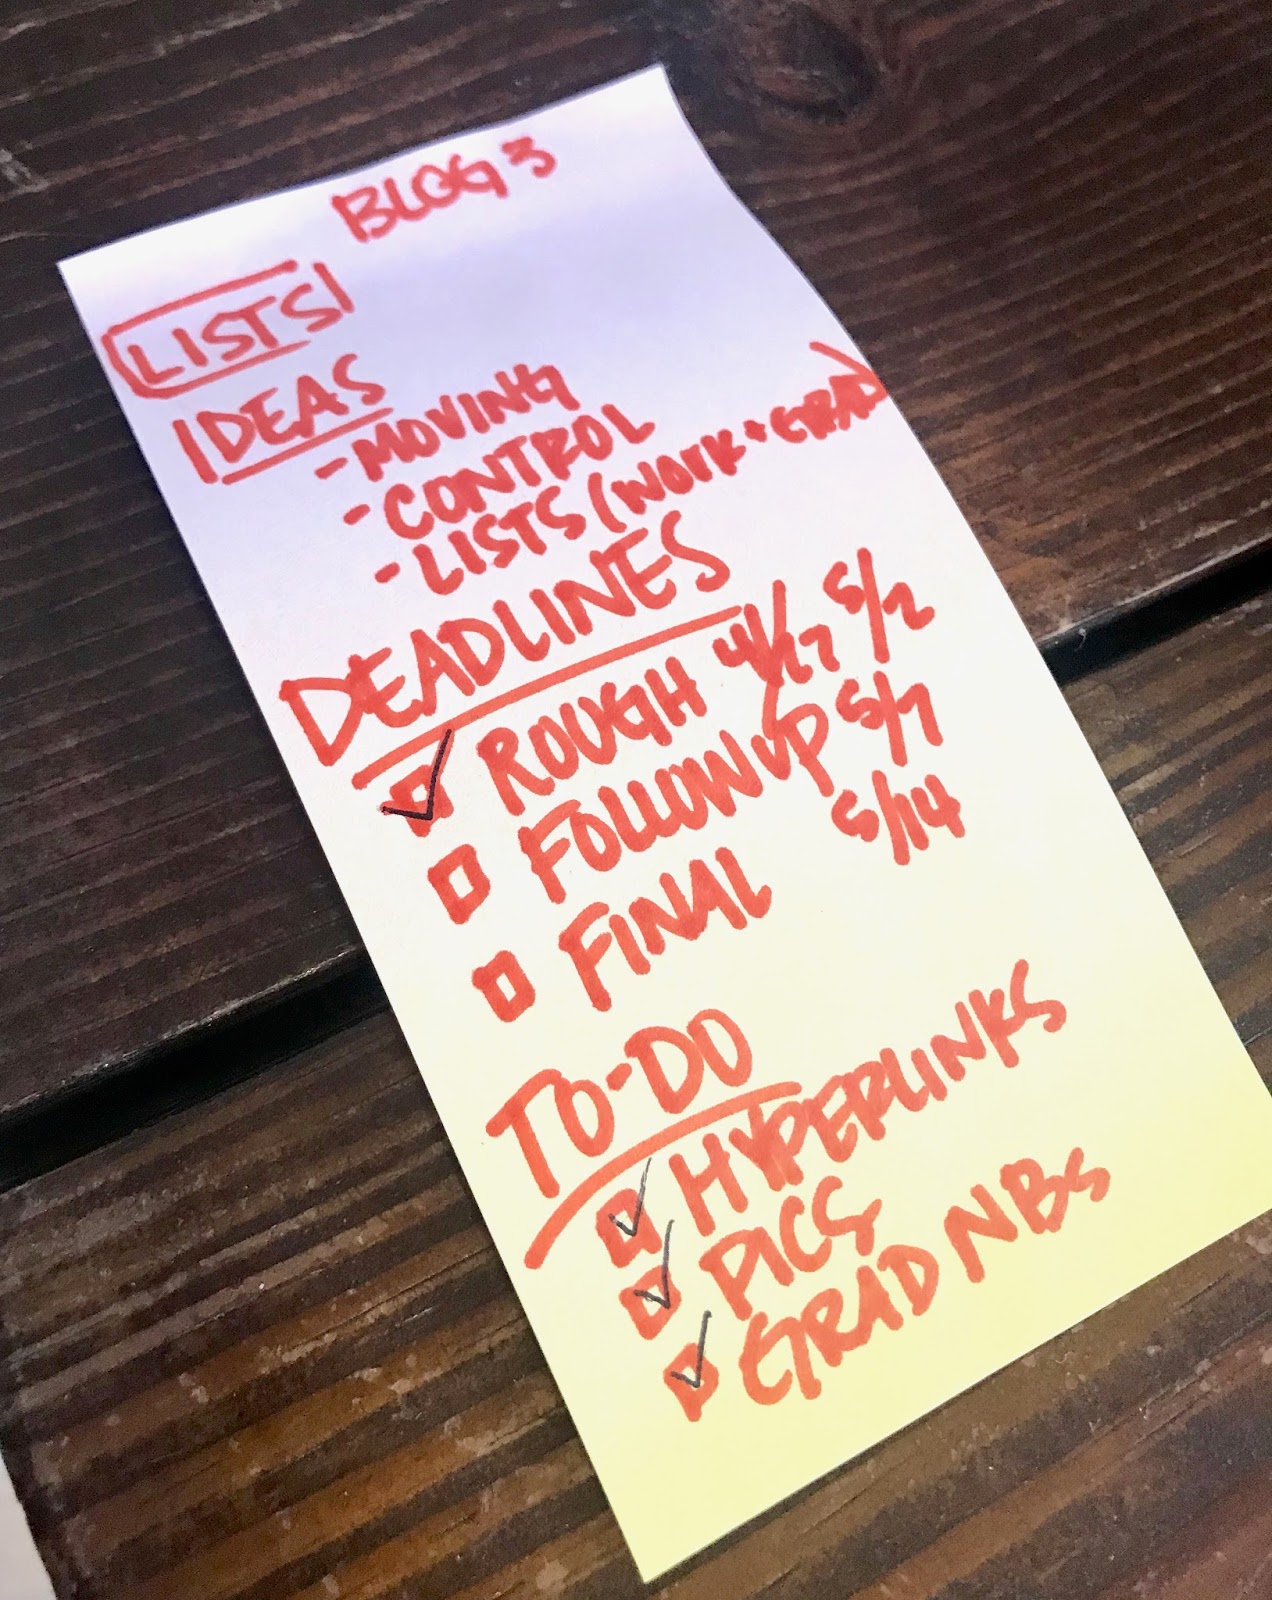 BLOG 3
LISTS
IDEAS
- MOVING
- CONTROL
- LISTS (WORK + GRAD)
DEADLINES
ROUGH 4/27 5/2
FOLLOW UP 5/7
FINAL 5/14
TO-DO
HYPERLINKS
PICS
GRAD NBs